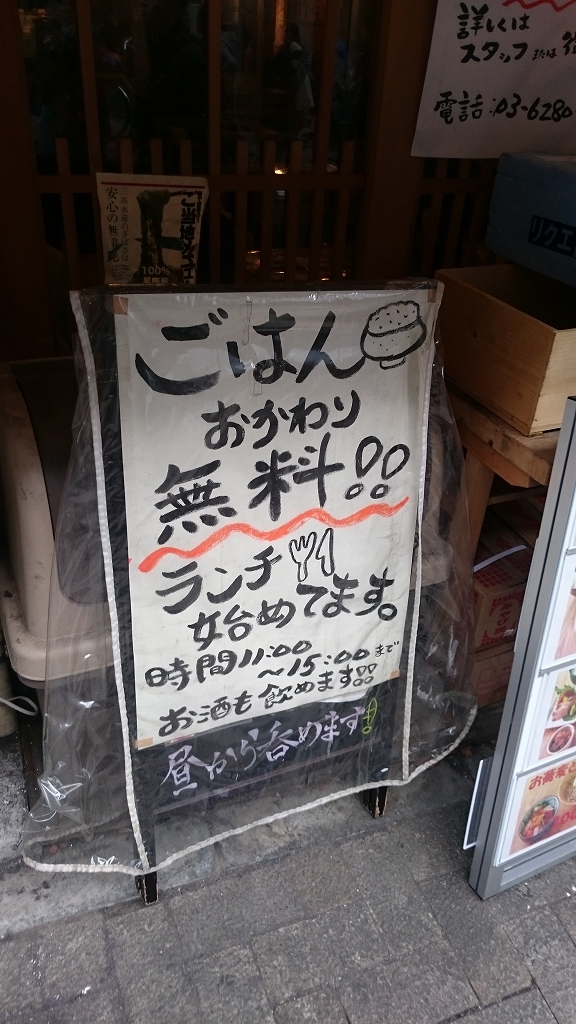 詳しくは
スタッフ または
電話:03-6280
安心の無農
100%
リクエ
ごはん
おかわり
無料!!
ランチ
始めてます。
時間11:00
〜15:00まで
お酒も飲めます!!
昼から呑めます!
お蕎麦と